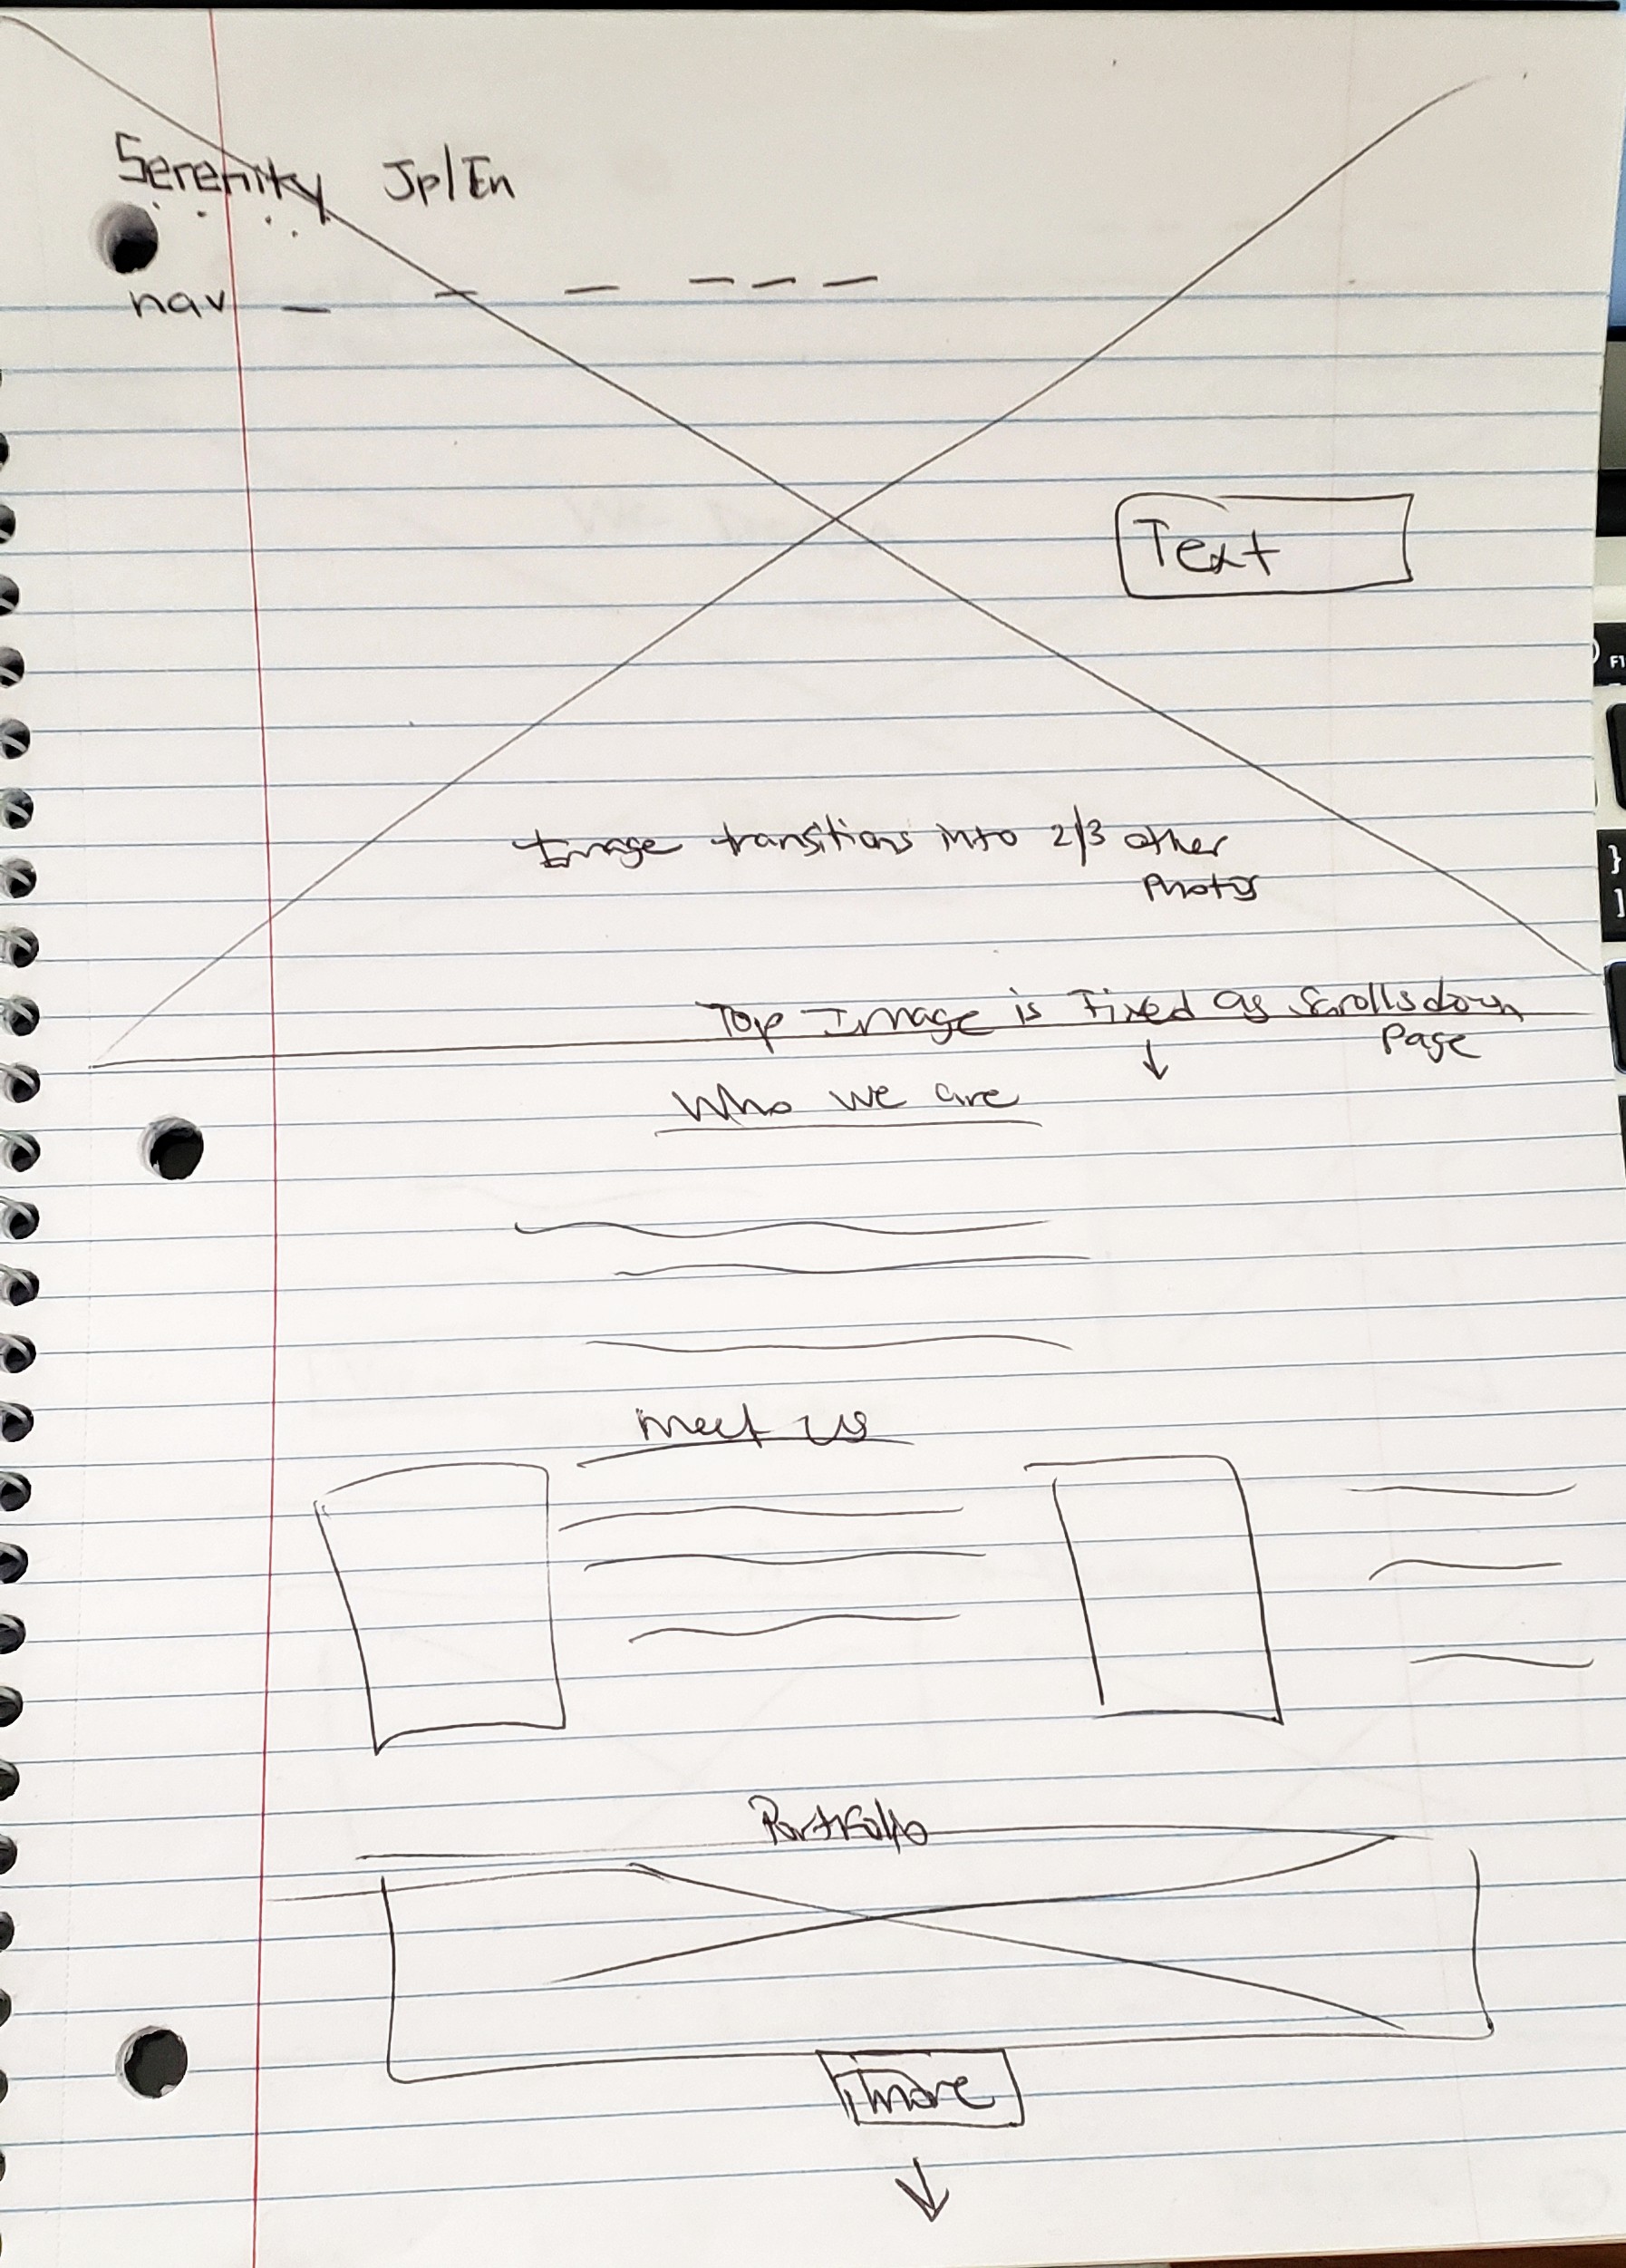 Serenity Jp/En
nav
Text
Image transitions into 2/3 other
Photos
Top Image is Fixed as Scrolls down
Page
Who we are
Meet us
Portfolio
more
F1
}
]